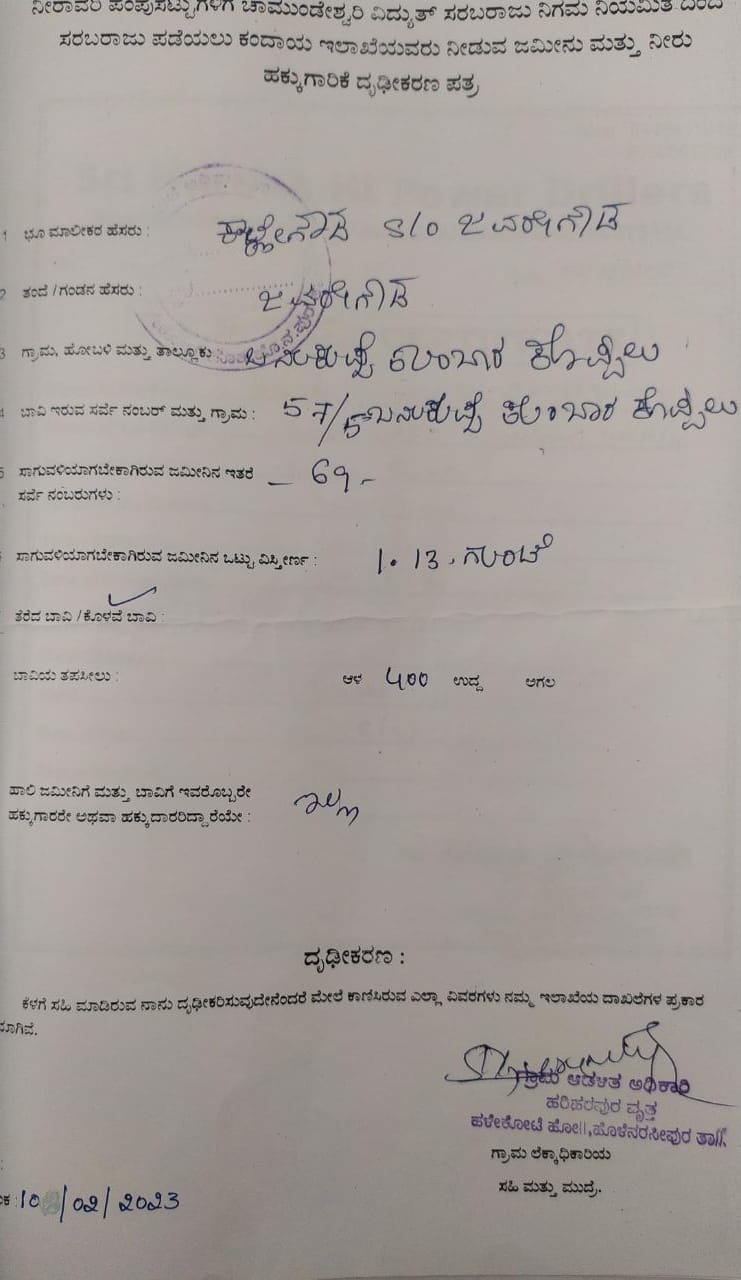 ನೀರಾವರಿ ಪಂಪುಸೆಟ್ಟುಗಳಿಗೆ ಚಾಮುಂಡೇಶ್ವರಿ ವಿದ್ಯುತ್ ಸರಬರಾಜು ನಿಗಮ ನಿಯಮಿತ ದಿಂದ
ಸರಬರಾಜು ಪಡೆಯಲು ಕಂದಾಯ ಇಲಾಖೆಯವರು ನೀಡುವ ಜಮೀನು ಮತ್ತು ನೀರು
ಹಕ್ಕುಗಾರಿಕೆ ದೃಢೀಕರಣ ಪತ್ರ
1 ಭೂ ಮಾಲೀಕರ ಹೆಸರು : ಕಾಳೇಗೌಡ S/o ಜವರೇಗೌಡ
2 ತಂದೆ / ಗಂಡನ ಹೆಸರು : ಜವರೇಗೌಡ
3 ಗ್ರಾಮ, ಹೋಬಳಿ ಮತ್ತು ತಾಲ್ಲೂಕು : ಕುಂಬಾರ ಕೊಪ್ಪಲು
4 ಬಾವಿ ಇರುವ ಸರ್ವೆ ನಂಬರ್ ಮತ್ತು ಗ್ರಾಮ : 57/5 ಕುಂಬಾರ ಕೊಪ್ಪಲು
5 ಸಾಗುವಳಿಯಾಗಬೇಕಾಗಿರುವ ಜಮೀನಿನ ಇತರೆ - 69 -
ಸರ್ವೆ ನಂಬರುಗಳು :
ಸಾಗುವಳಿಯಾಗಬೇಕಾಗಿರುವ ಜಮೀನಿನ ಒಟ್ಟು ವಿಸ್ತೀರ್ಣ : 1. 13. ಗುಂಟೆ
ತೆರೆದ ಬಾವಿ / ಕೊಳವೆ ಬಾವಿ :
ಬಾವಿಯ ತಪಸೀಲು : ಆಳ 400 ಉದ್ದ ಅಗಲ
ಹಾಲಿ ಜಮೀನಿಗೆ ಮತ್ತು ಬಾವಿಗೆ ಇವರೊಬ್ಬರೇ ಇಲ್ಲ
ಹಕ್ಕುಗಾರರೇ ಅಥವಾ ಹಕ್ಕುದಾರರಿದ್ದಾರೆಯೇ :
ದೃಢೀಕರಣ :
ಕೆಳಗೆ ಸಹಿ ಮಾಡಿರುವ ನಾನು ದೃಢೀಕರಿಸುವುದೇನೆಂದರೆ ಮೇಲೆ ಕಾಣಿಸಿರುವ ಎಲ್ಲಾ ವಿವರಗಳು ನಮ್ಮ ಇಲಾಖೆಯ ದಾಖಲೆಗಳ ಪ್ರಕಾರ
ಗ್ರಾಮ ಆಡಳಿತ ಅಧಿಕಾರಿ
ಹರಿಹರಪುರ ವೃತ್ತ
ಹಳೇಕೋಟೆ ಹೋ||, ಹೊಳೆನರಸೀಪುರ ತಾ||.
ಗ್ರಾಮ ಲೆಕ್ಕಾಧಿಕಾರಿಯ
ಸಹಿ ಮತ್ತು ಮುದ್ರೆ.
/02/2023